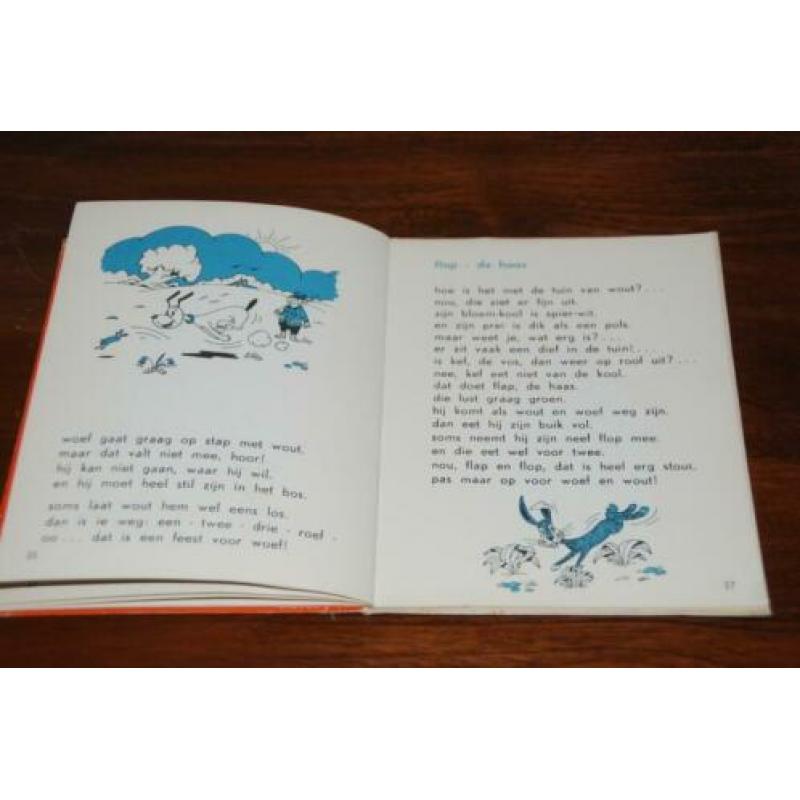 woef gaat graag op stap met wout.
maar dat valt niet mee, hoor!
hij kan niet gaan, waar hij wil.
en hij moet heel stil zijn in het bos.
soms laat wout hem wel eens los.
dan is ie weg: een - twee - drie - roef -
oo... dat is een feest voor woef!
flap - de haas
hoe is het met de tuin van wout?...
nou, die ziet er fijn uit.
zijn bloem-kool is spier-wit.
en zijn prei is dik als een pols.
maar weet je, wat erg is?...
er zit vaak een dief in de tuin!....
is kef, de vos, dan weer op roof uit?...
nee, kef eet niet van de kool.
dat doet flap, de haas.
die lust graag groen.
hij komt als wout en woef weg zijn.
dan eet hij zijn buik vol.
soms neemt hij zijn neef flop mee.
en die eet wel voor twee.
nou, flap en flop, dat is heel erg stout.
pas maar op voor woef en wout!